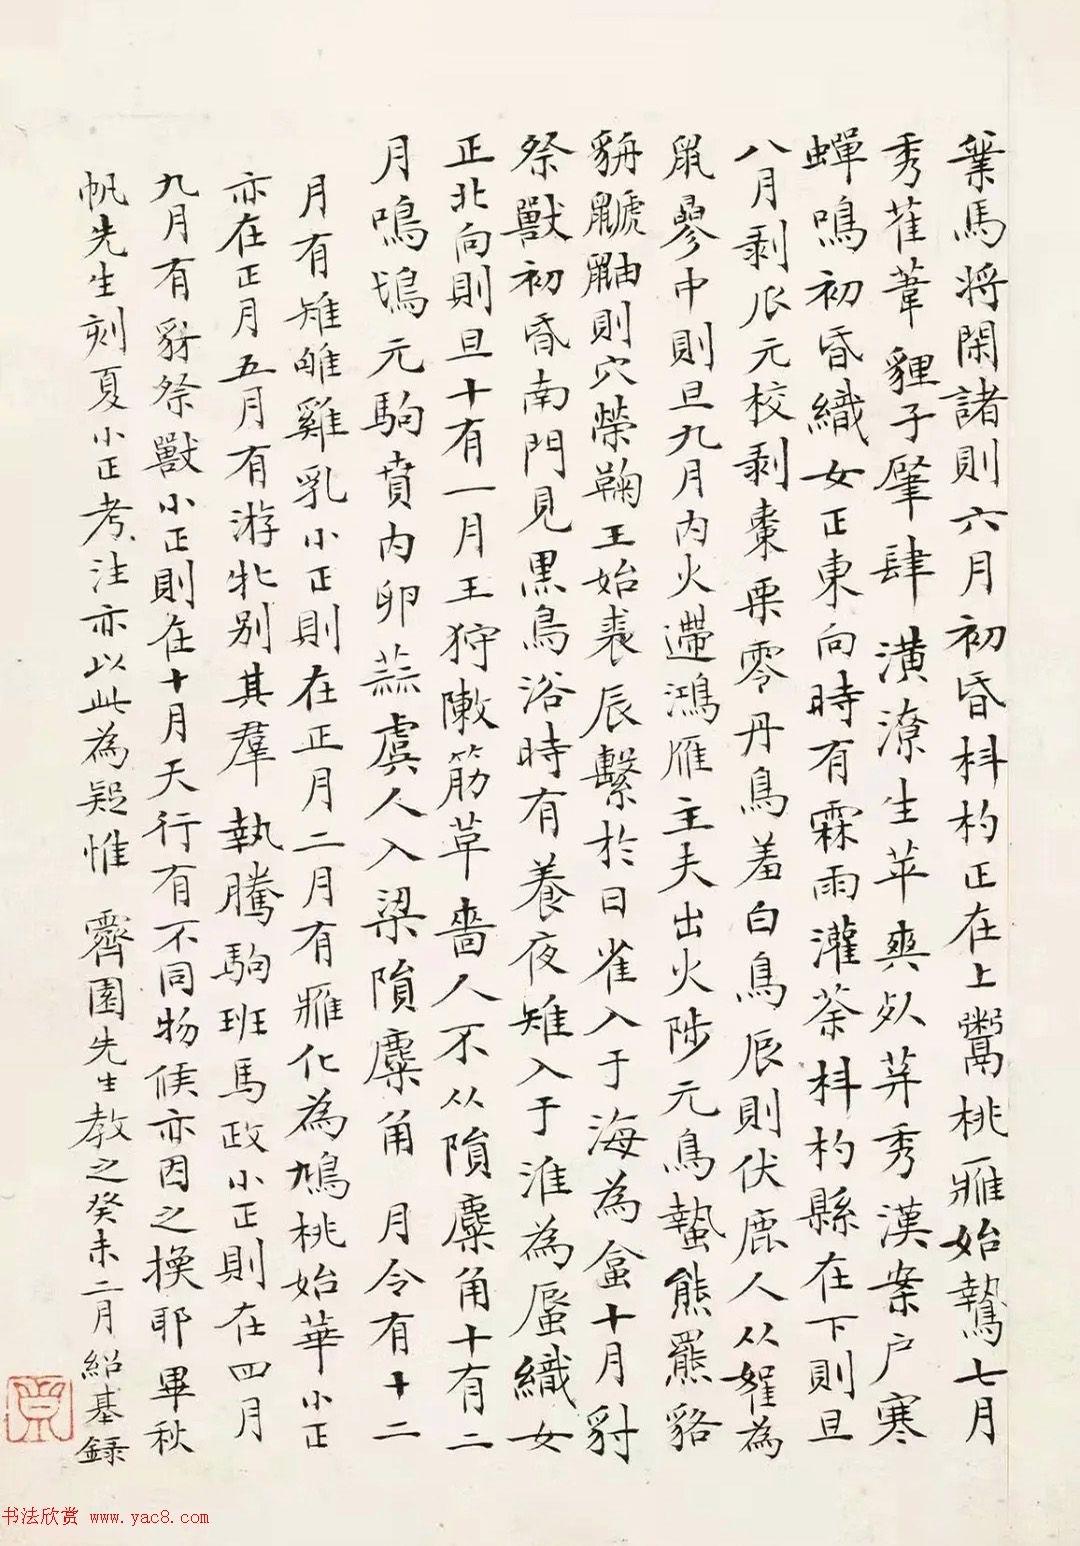 業馬將閑諸則六月初昏枓杓正在上鬻桃雁始鷙七月
秀雚葦貍子肇肆潢潦生苹爽死荓秀漢案户寒
蟬鳴初昏織女正東向時有霖雨灌荼枓杓縣在下則旦
八月剥瓜元校剥棗栗零丹鳥羞白鳥辰則伏鹿人从䳺為
鼠參中則旦九月内火遰鴻雁主夫出火陟元鳥蟄熊羆貉
貈鼶鼬則穴榮鞠王始裘辰繫於日雀入于海為蛤十月豺
祭獸初昏南門見黑鳥浴時有養夜雉入于淮為蜃織女
正北向則旦十有一月王狩陳筋革嗇人不从隕麋角十有二
月鳴鳶元駒賁内卵蒜虞人入梁隕麋角 月令有十二
月有雉雊雞乳小正則在正月二月有鷹化為鳩桃始華小正
亦在正月五月有游牝别其羣執騰駒班馬政小正則在四月
九月有豺祭獸小正則在十月天行有不同物候亦因之換耶畢秋
帆先生刻夏小正考注亦以此為疑惟 霽園先生教之癸未二月紹基録
书法欣赏 www.yac8.com